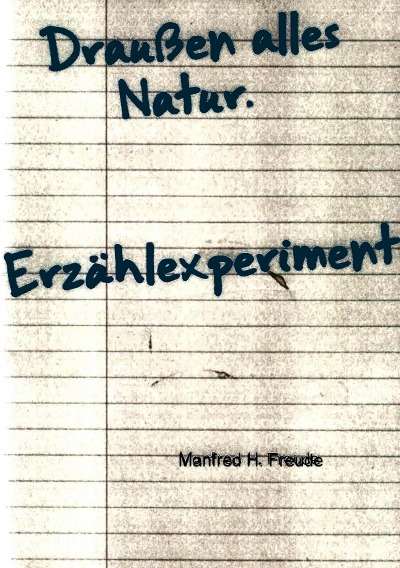 Draußen alles
Natur.
Erzählexperiment
Manfred H. Freude